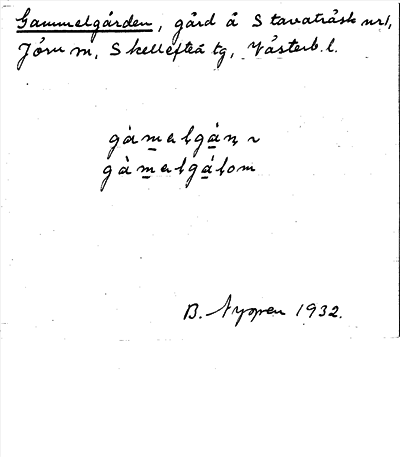 Gammelgården, gård å Stavaträsk nr 1,
Jörn sn, Skellefteå tg, Västerb. l.
gàmalgån
gàmalgålom
B. Nyman 1932.